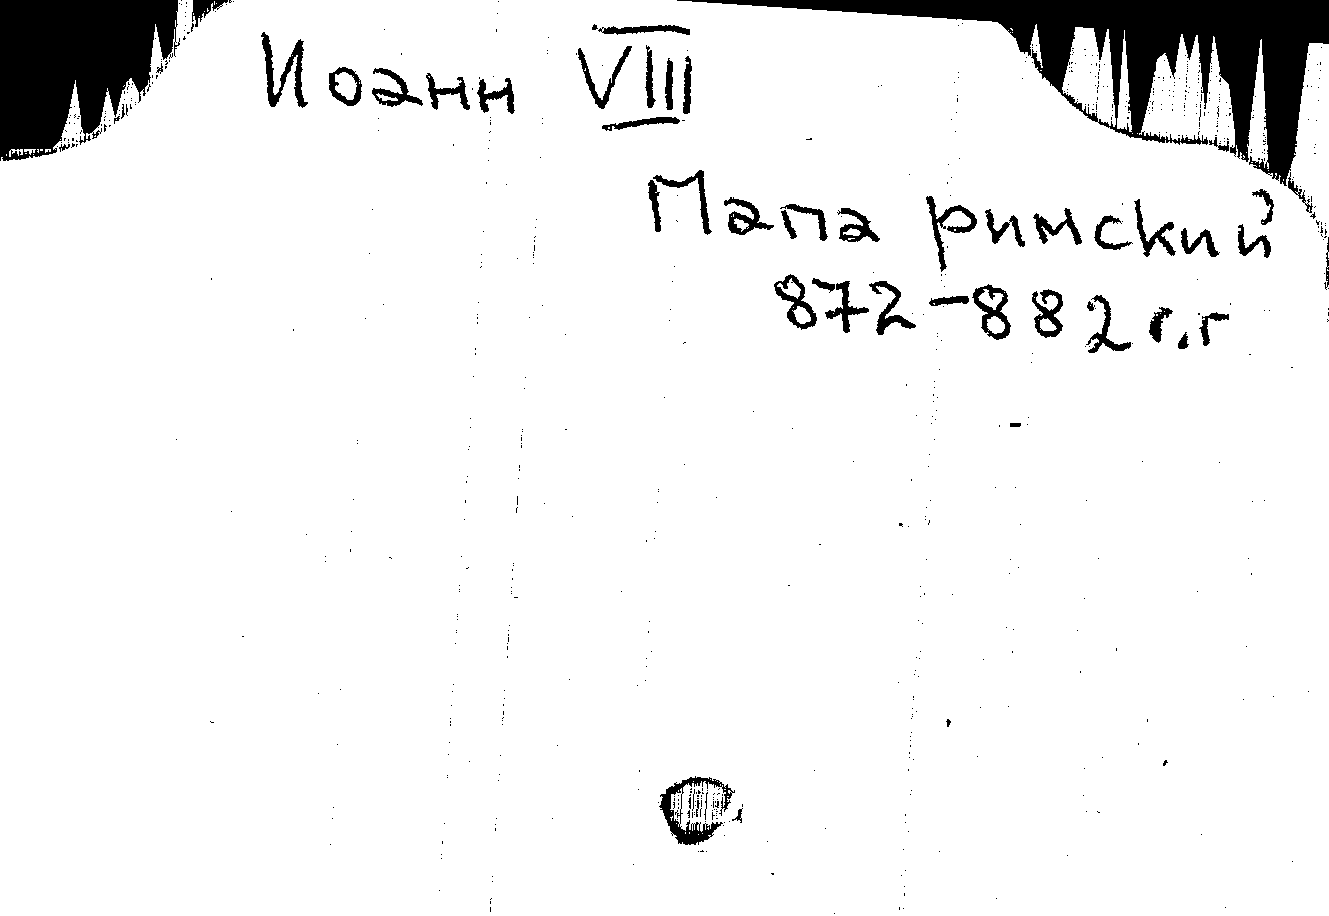 Иоанн VIII
Папа римский
872-882 г.г